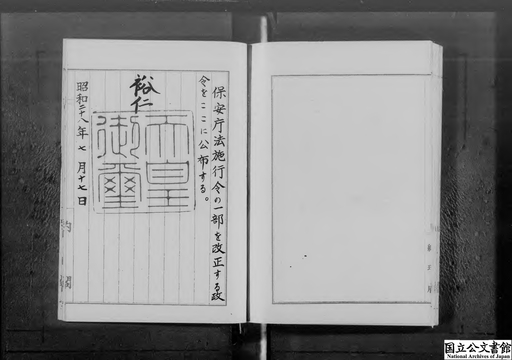 保安庁法施行令の一部を改正する政
令をここに公布する。
裕仁
天皇
御璽
昭和二十八年七月十七日
内閣
国立公文書館
National Archives of Japan